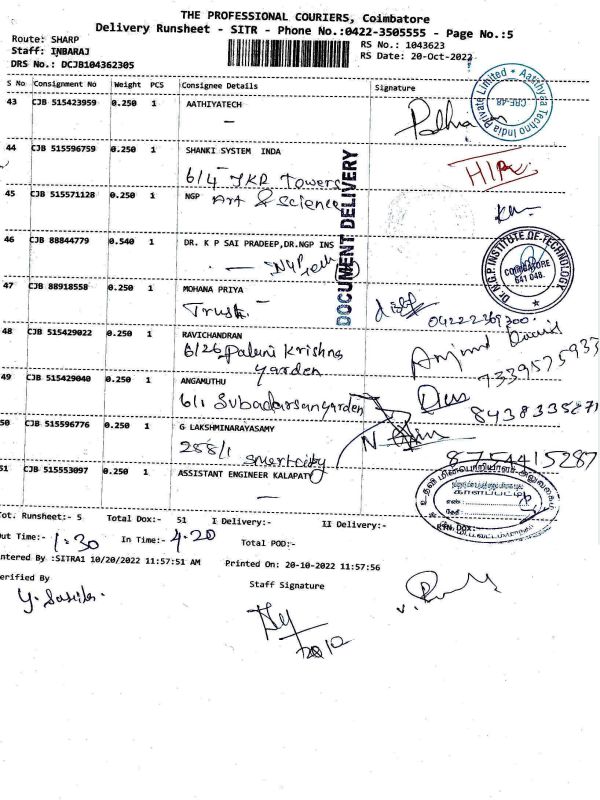 THE PROFESSIONAL COURIERS, Coimbatore
Delivery Runsheet - SITR - Phone No.:0422-3505555 - Page No.:5
Route: SHARP
Staff: INBARAJ
DRS No.: DCJB104362305
RS No.: 1043623
RS Date: 20-Oct-2022
S No Consignment No Weight PCS Consignee Details Signature
43 CJB 515423959 0.250 1 AATHIYATECH
Aasthyaa Techno India Private Limited
CBE-48
44 CJB 515596759 0.250 1 SHANKI SYSTEM INDA
6/4 TKR Towers
45 CJB 515571128 0.250 1 NGP Art & Science
46 CJB 88844779 0.540 1 DR. K P SAI PRADEEP,DR.NGP INS
Dr. N.G.P. INSTITUTE OF TECHNOLOGY
COIMBATORE
641 048.
47 CJB 88918558 0.250 1 MOHANA PRIYA
Trust.
04222369300
48 CJB 515429022 0.250 1 RAVICHANDRAN
6/26, Palani Krishna
garden
7339575933
49 CJB 515429040 0.250 1 ANGAMUTHU
6/1 Subadarsan garden
50 CJB 515596776 0.250 1 G LAKSHMINARAYASAMY
288/1 Smartcity
8754415287
51 CJB 515553097 0.250 1 ASSISTANT ENGINEER KALAPATY
காளப்பட்டி
DOCUMENT DELIVERY
Tot. Runsheet:- 5 Total Dox:- 51 I Delivery:- II Delivery:- RTN Dox:
Out Time:- 1:30 In Time:- 4.20 Total POD:-
Entered By :SITRA1 10/20/2022 11:57:51 AM Printed On: 20-10-2022 11:57:56
Verified By Staff Signature